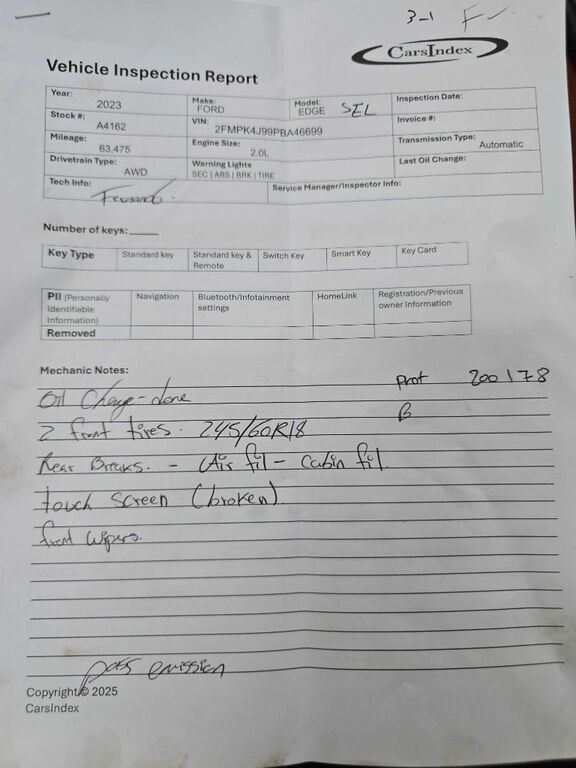 3-1 F ✓
CarsIndex
Vehicle Inspection Report
Year: 2023 Make: FORD Model: EDGE SEL Inspection Date:
Stock #: A4162 VIN: 2FMPK4J99PBA46699 Invoice #:
Mileage: 63,475 Engine Size: 2.0L Transmission Type: Automatic
Drivetrain Type: AWD Warning Lights SEC | ABS | BRK | TIRE Last Oil Change:
Tech Info: Service Manager/Inspector Info:
Number of keys:
Key Type Standard key Standard key & Remote Switch Key Smart Key Key Card
PII (Personally Identifiable Information) Removed Navigation Bluetooth/Infotainment settings HomeLink Registration/Previous owner Information
Mechanic Notes:
Oil Change - done 200178
2 front tires. 245/60R18 B
Rear Breaks. - Air fil - Cabin fil.
touch screen (broken).
front wipers.
pass emission
Copyright © 2025
CarsIndex